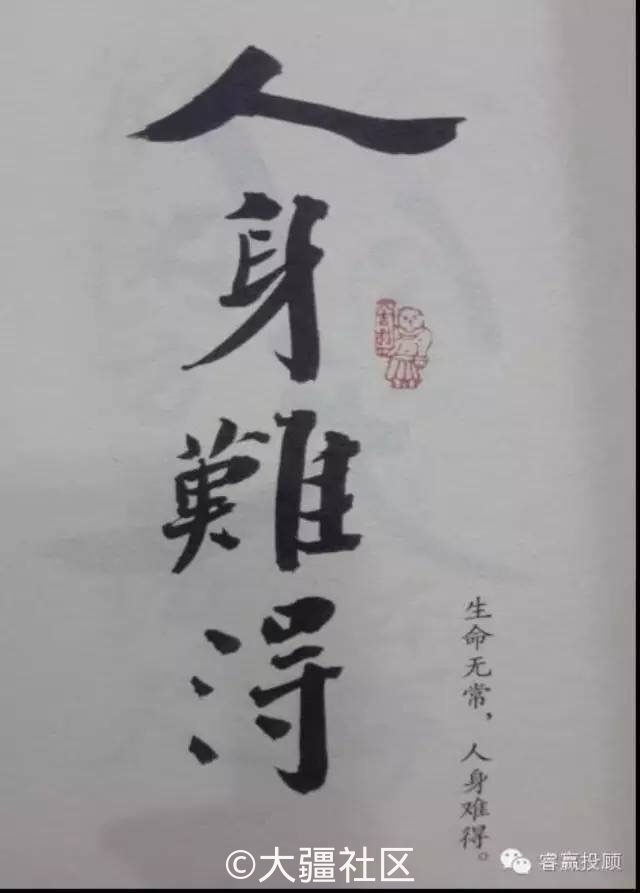 人身難得
生命无常，人身难得。
睿赢投顾
©大疆社区